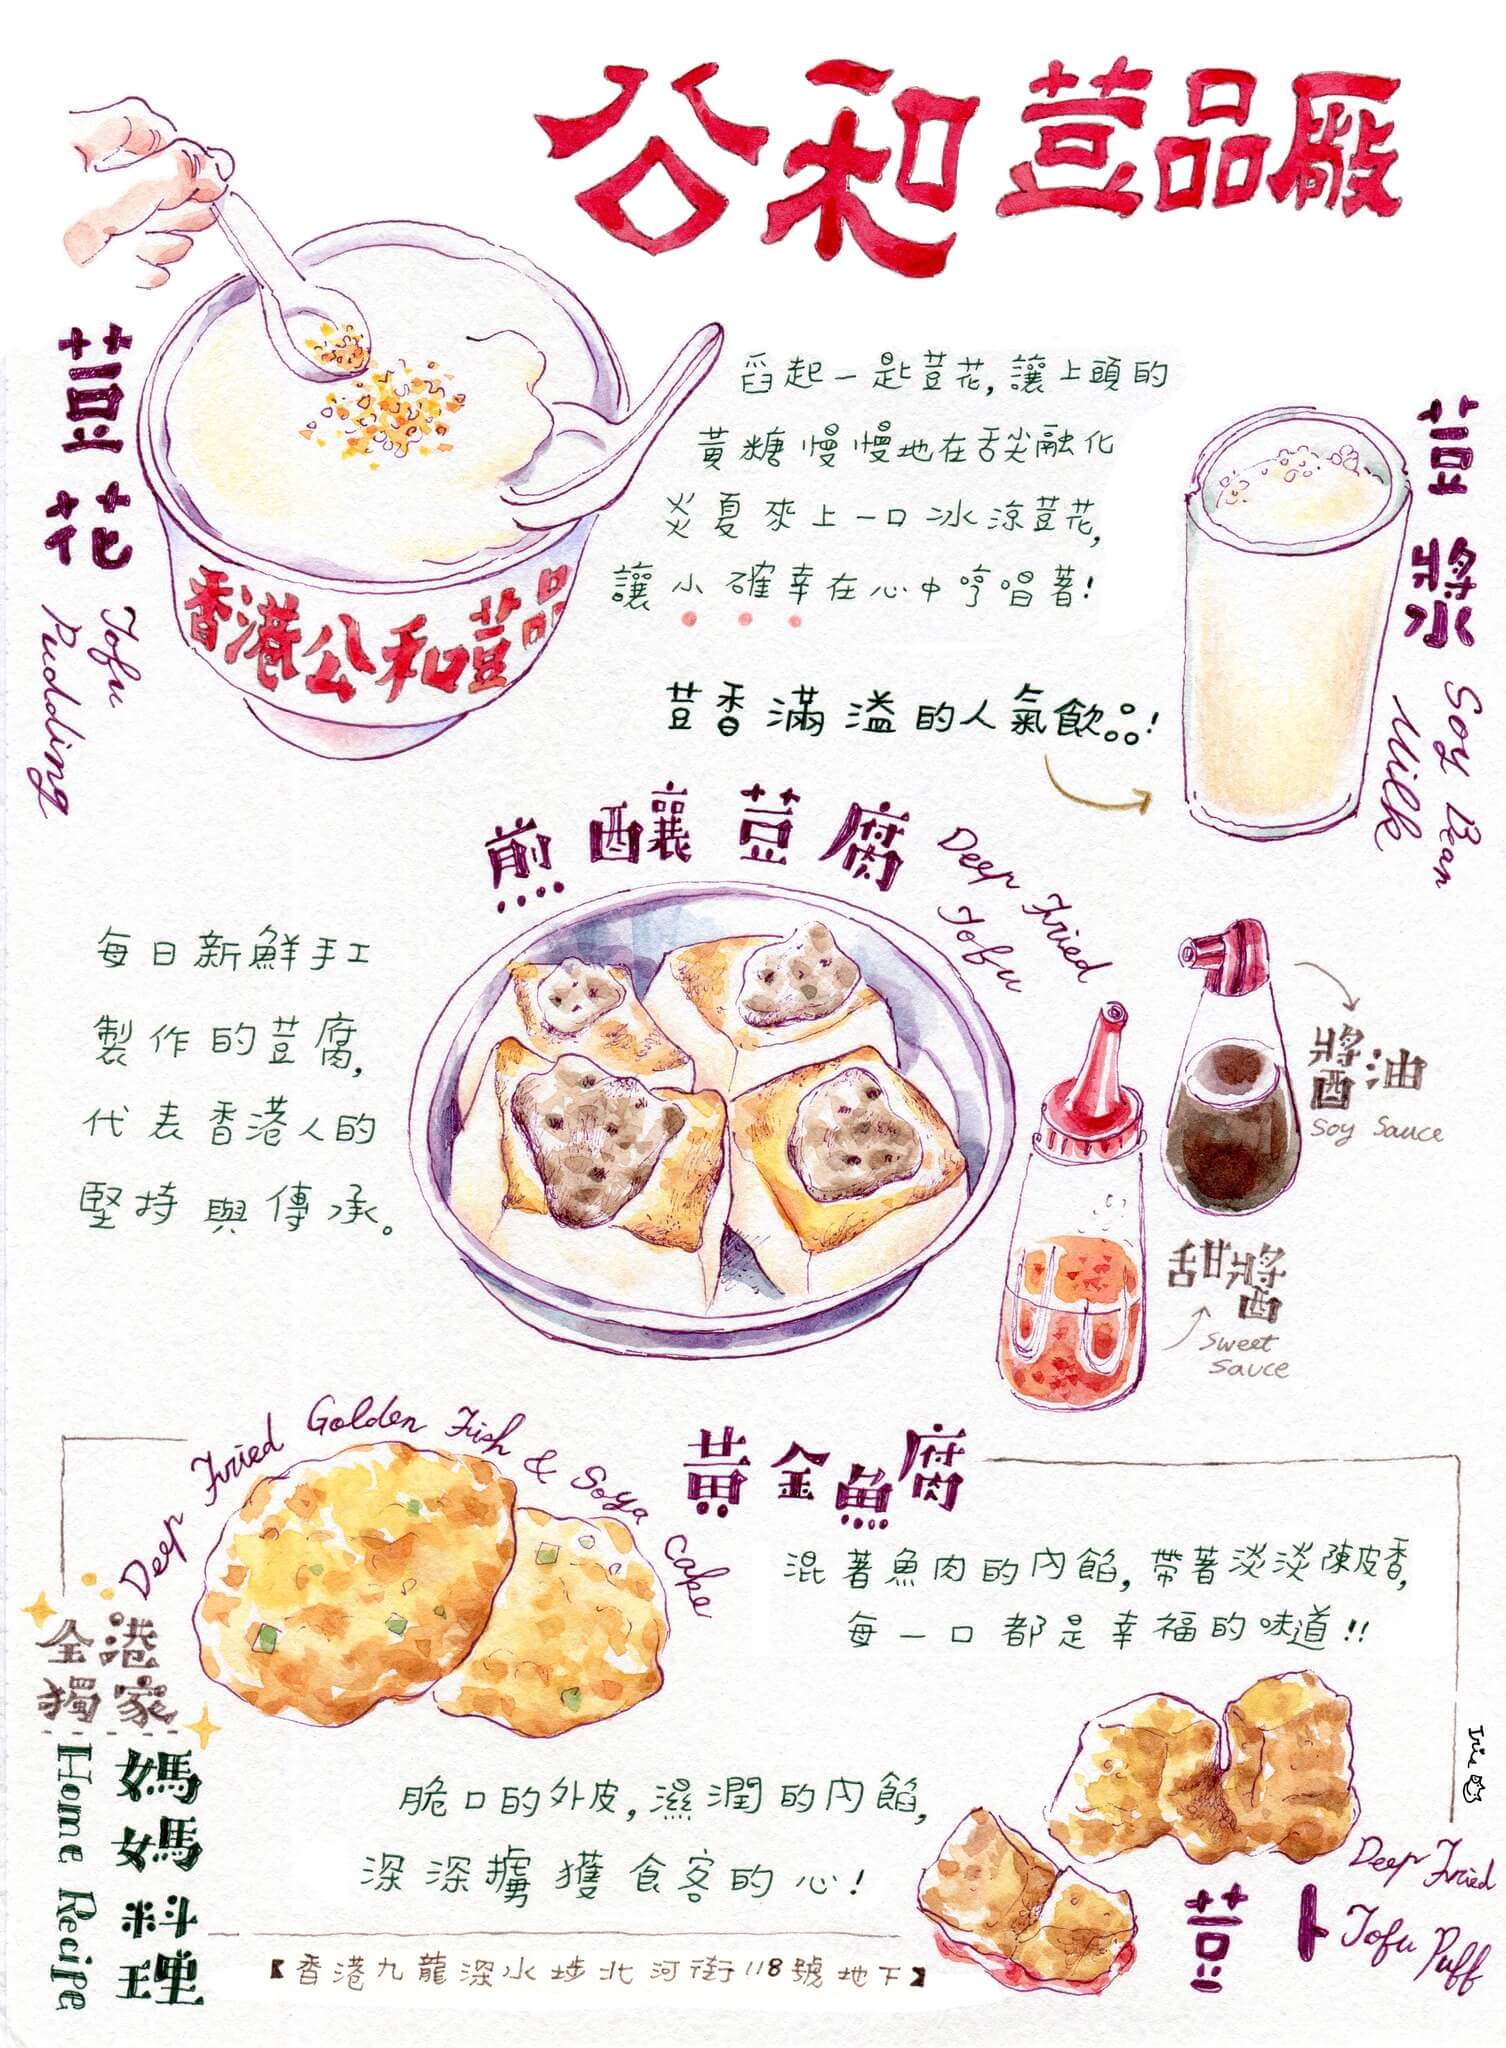 公和荳品廠
荳花
Tofu
Pudding
香港公和荳品
舀起一匙荳花,讓上頭的
黃糖慢慢地在舌尖融化
炎夏來上一口冰涼荳花,
讓小確幸在心中哼唱著!
荳漿
Soy Bean
Milk
荳香滿溢的人氣飲品!
煎釀荳腐
Deep Fried
Tofu
每日新鮮手工
製作的荳腐,
代表香港人的
堅持與傳承。
醬油
Soy Sauce
甜醬
Sweet
Sauce
Deep Fried Golden Fish & Soya Cake
黃金魚腐
混著魚肉的內餡,帶著淡淡陳皮香,
每一口都是幸福的味道!!
全港
獨家
媽媽料理
Home Recipe
脆口的外皮,濕潤的內餡,
深深擄獲食客的心!
Iris
Deep Fried
Tofu Puff
荳卜
【香港九龍深水埗北河街118號地下】